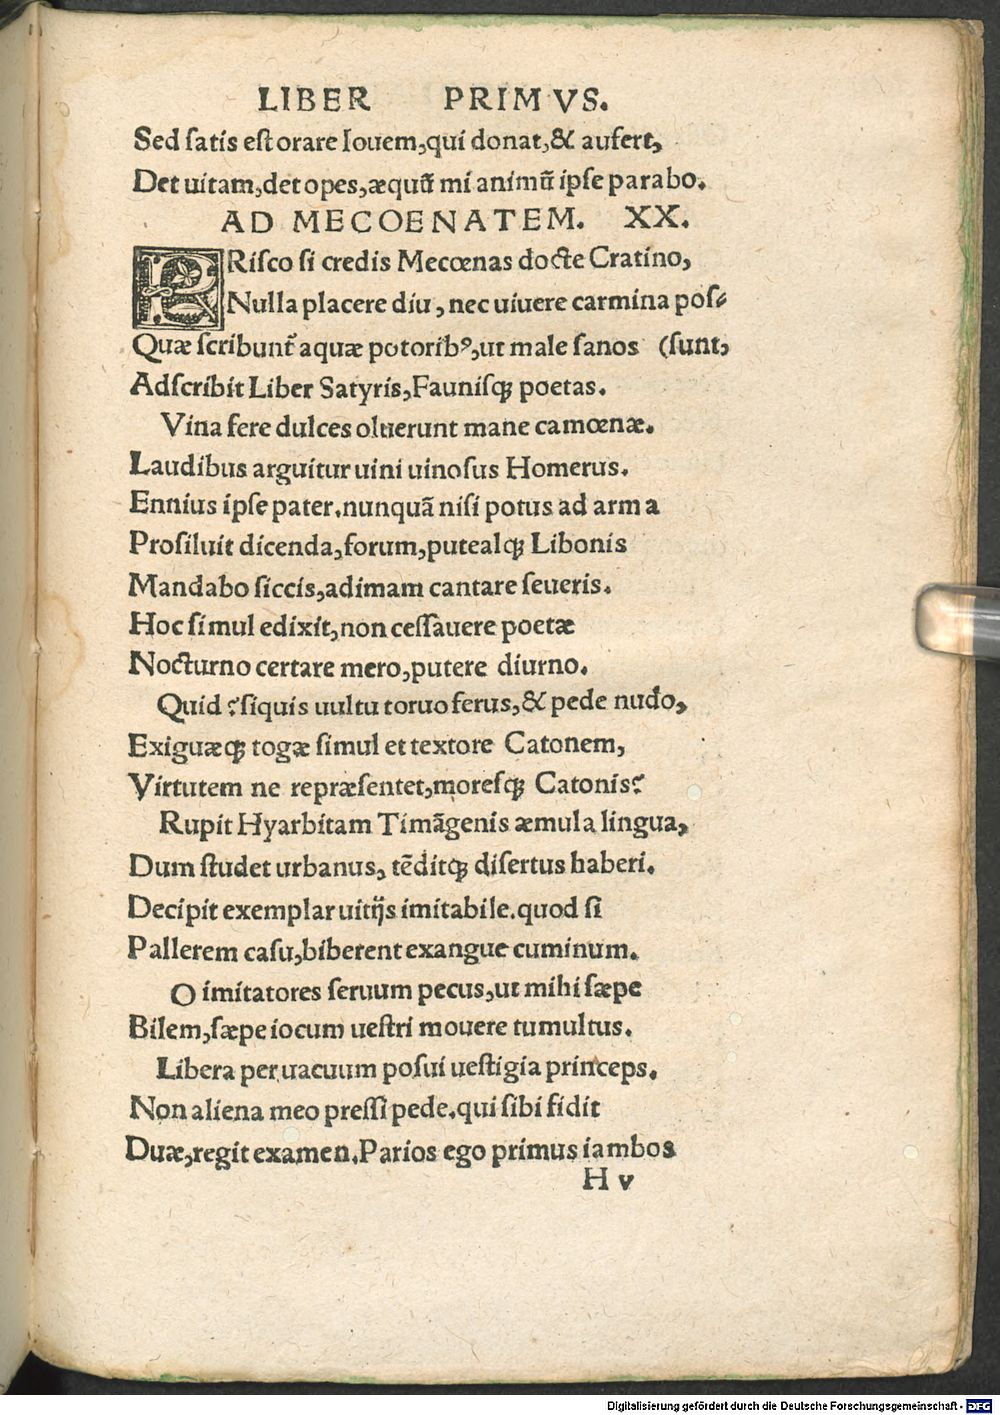 LIBER PRIMVS.
Sed ſatis eſt orare Iouem,qui donat,& aufert,
Det uitam,det opes,æquū mi animū ipſe parabo.
AD MECOENATEM. XX.
PRiſco ſi credis Mecœnas docte Cratino,
Nulla placere diu, nec uiuere carmina poſ⸗
Quæ ſcribunt᷑ aquæ potoribꝰ,ut male ſanos (ſunt,
Adſcribit Liber Satyris,Fauniſqꝫ poetas.
Vina fere dulces oluerunt mane camœnæ.
Laudibus arguitur uini uinoſus Homerus.
Ennius ipſe pater.nunquā niſi potus ad arma
Proſiluit dicenda,forum,putealqꝫ Libonis
Mandabo ſiccis,adimam cantare ſeueris.
Hoc ſimul edixit,non ceſſauere poetæ
Nocturno certare mero,putere diurno.
Quid ? ſiquis uultu toruo ferus,& pede nudo,
Exiguæqꝫ togæ ſimul et textore Catonem,
Virtutem ne repræſentet,moreſqꝫ Catonis?
Rupit Hyarbitam Timāgenis æmula lingua,
Dum ſtudet urbanus, tēditqꝫ diſertus haberi.
Decipit exemplar uitijs imitabile.quod ſi
Pallerem caſu,biberent exangue cuminum.
O imitatores ſeruum pecus,ut mihi ſæpe
Bilem,ſæpe iocum ueſtri mouere tumultus.
Libera per uacuum poſui ueſtigia princeps.
Non aliena meo preſſi pede.qui ſibi fidit
Duæ,regit examen.Parios ego primus iambos
H v
Digitalisierung gefördert durch die Deutsche Forschungsgemeinschaft - DFG